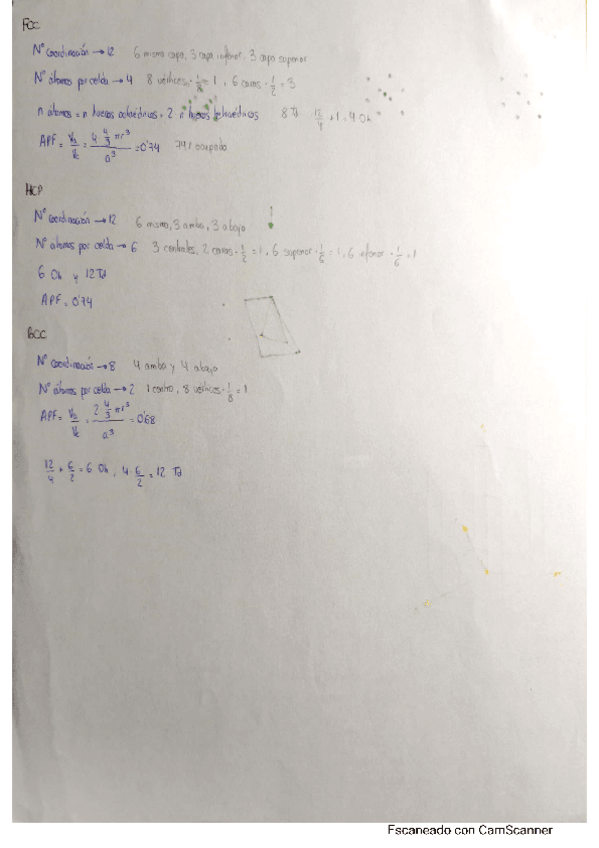 FCC
Nº Coordinación → 12 6 misma capa, 3 capa inferior, 3 capa superior
Nº átomos por celda → 4 8 vértices · 1/8 = 1, 6 caras · 1/2 = 3
n átomos = n huecos octaédricos · 2 n huecos tetraédricos 8 Td 12/4 + 1 = 4 Oh
APF = = 4 · 4/3 πr³ / a³ = 0'74 74% ocupado
HCP
Nº coordinación → 12 6 mismo, 3 arriba, 3 abajo
Nº átomos por celda → 6 3 centrales, 2 caras · 1/2 = 1, 6 superior · 1/6 = 1, 6 inferior · 1/6 = 1
6 Oh y 12 Td
APF = 0'74
BCC
Nº coordinación → 8 4 arriba y 4 abajo
Nº átomos por celda → 2 1 centro, 8 vértices · 1/8 = 1
APF = = 2 · 4/3 πr³ / a³ = 0'68
12/4 + 6/2 = 6 Oh, 4 · 6/2 = 12 Td
Escaneado con CamScanner